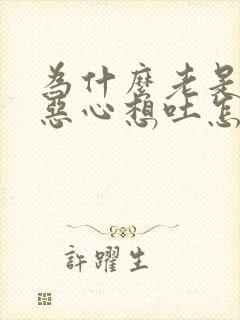 為什麼老是
惡心想吐怎
許躍生